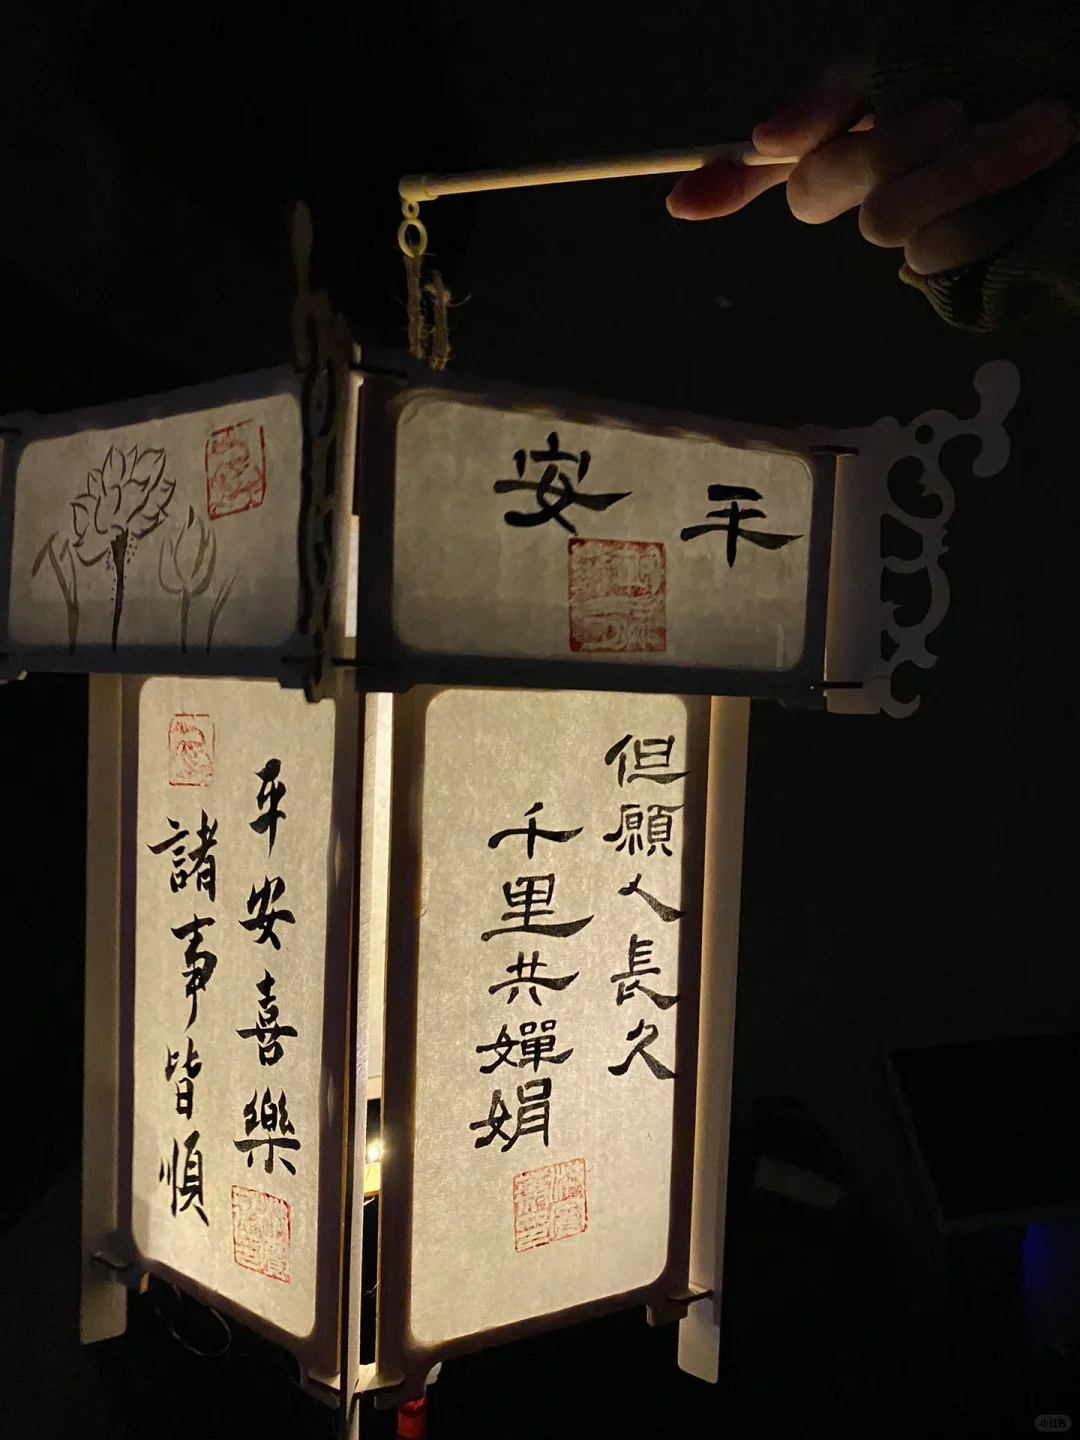 平安
但願人長久
千里共嬋娟
平安喜樂
諸事皆順
小红书